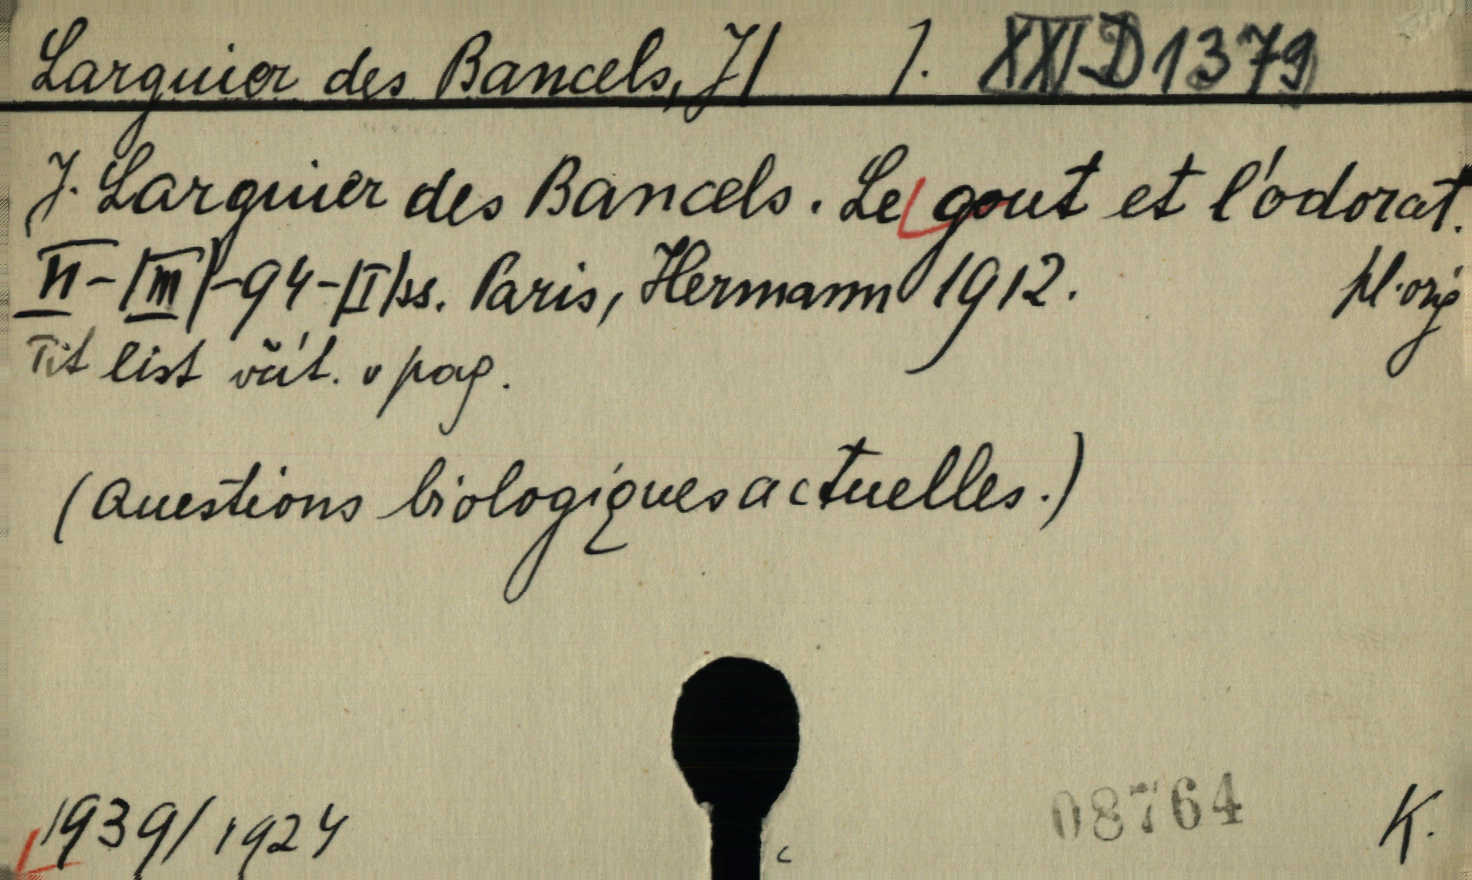 Larguier des Bancels, J| 1. XXI D 1379
J. Larguier des Bancels. Le gout et l'odorat.
II-|III|-94-|I|ss. Paris, Hermann 1912. pl. orig
Tit list včít. v pag.
(Questions biologiques actuelles.)
1939/1924 08764 K.